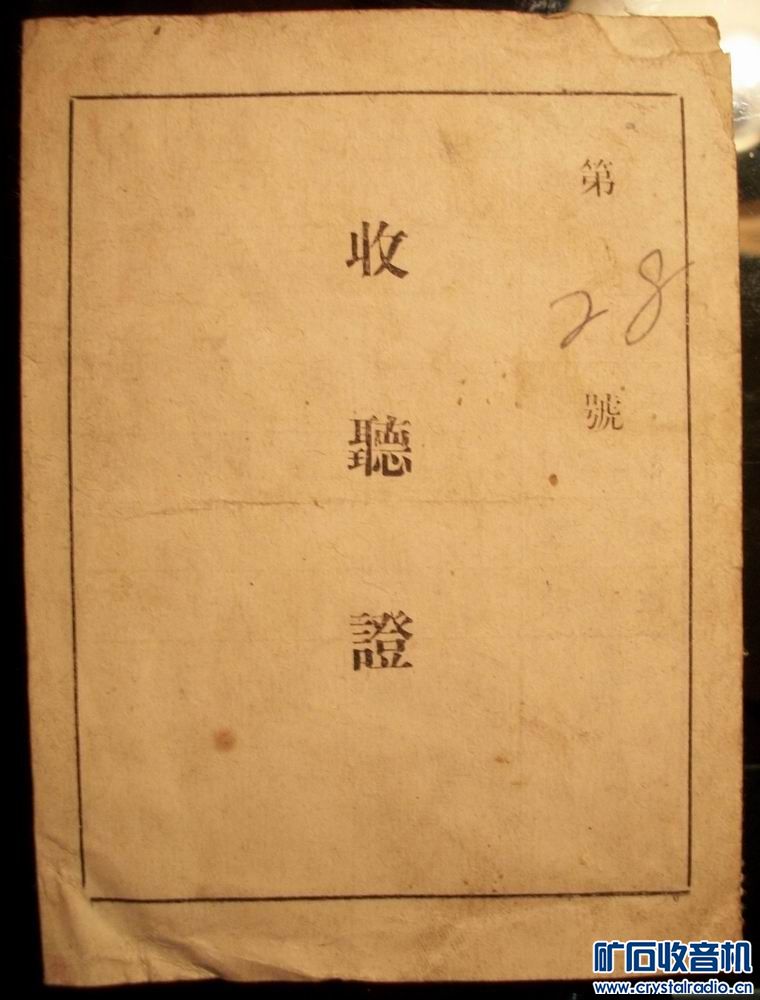 第28號
收聽證
矿石收音机
www.crystalradio.cn